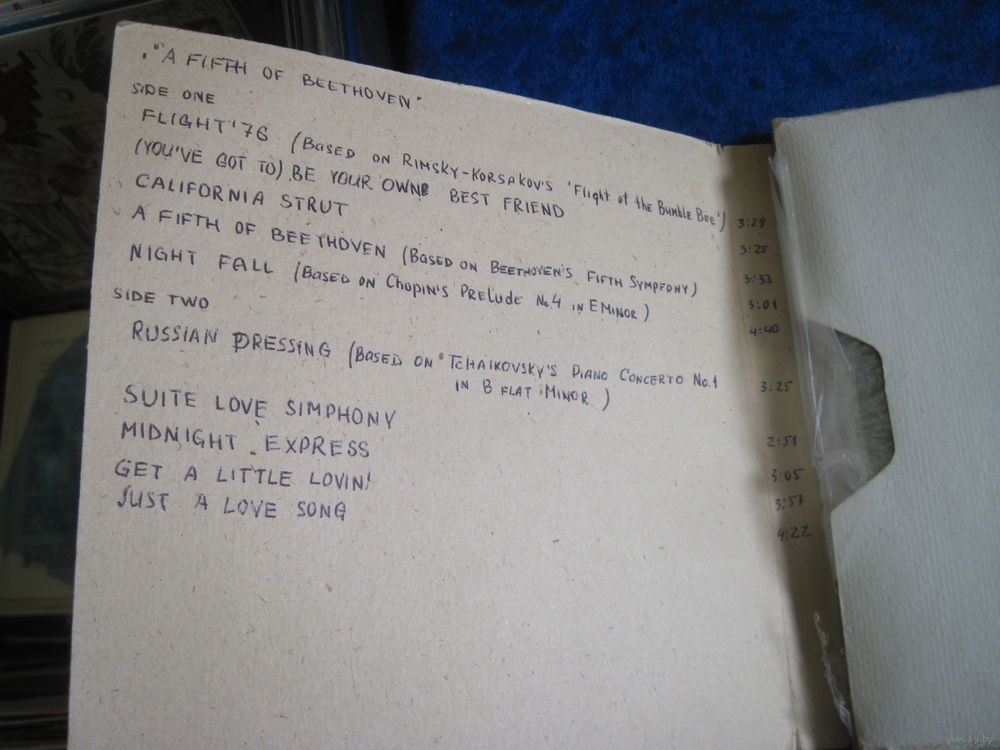 "A FIFTH OF BEETHOVEN"
SIDE ONE
FLIGHT '76 (BASED ON RIMSKY-KORSAKOV'S 'Flight of the Bumble Bee') 3:29
(YOU'VE GOT TO) BE YOUR OWN BEST FRIEND 3:25
CALIFORNIA STRUT 3:33
A FIFTH OF BEETHOVEN (BASED ON BEETHOVEN'S FIFTH SYMPFONY) 3:01
NIGHT FALL (BASED ON Chopin's PRELUDE No4 in E MINOR) 4:40
SIDE TWO
RUSSIAN DRESSING (BASED ON TCHAIKOVSKY'S PIANO CONCERTO No.1 3:25
IN B FLAT MINOR)
SUITE LOVE SIMPHONY 2:51
MIDNIGHT EXPRESS 3:05
GET A LITTLE LOVIN' 3:57
JUST A LOVE SONG 4:22
www.ay.by